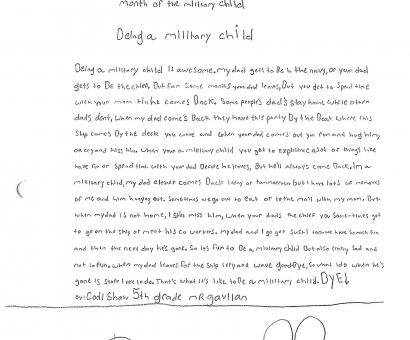 month of the military child
Being a military child
Being a military child is awesome. my dad gets to Be in the navy, or your dad
gets to Be the chief. But for some months your dad leaves, But you get to spend time
with your mom till he comes Back. Some people's dad's stay home while others
dads dont, when my dad come's Back they have this party By the Boat where this
ship comes By the deck you wave and when your dad comes out you run and hug him,
or cry and kiss him. when your a military child you get to experience alot of things like
have fun or spend time with your dad Before he leaves, But he'll always come Back. Im a
military child, my dad either comes Back today or tommorrow but I have lots of memories
of me and him hanging out. Sometimes we go out to eat or to the mall with my mom. But
when my dad is not home, I still miss him, when your dads the chief you sometimes get
to go on the ship or meet his co workers. my dad and I go get sushi too we have som fun
and then the next day he's gone. So its fun to Be a military child But also really sad and
not so fun. when my dad leaves for the ship I cry and wave goodbye, so what I do when he's
gone is stuff I love to do. That's what it's like to Be a military child. BYE!
By: Codi Shaw 5th grade mr gavlian